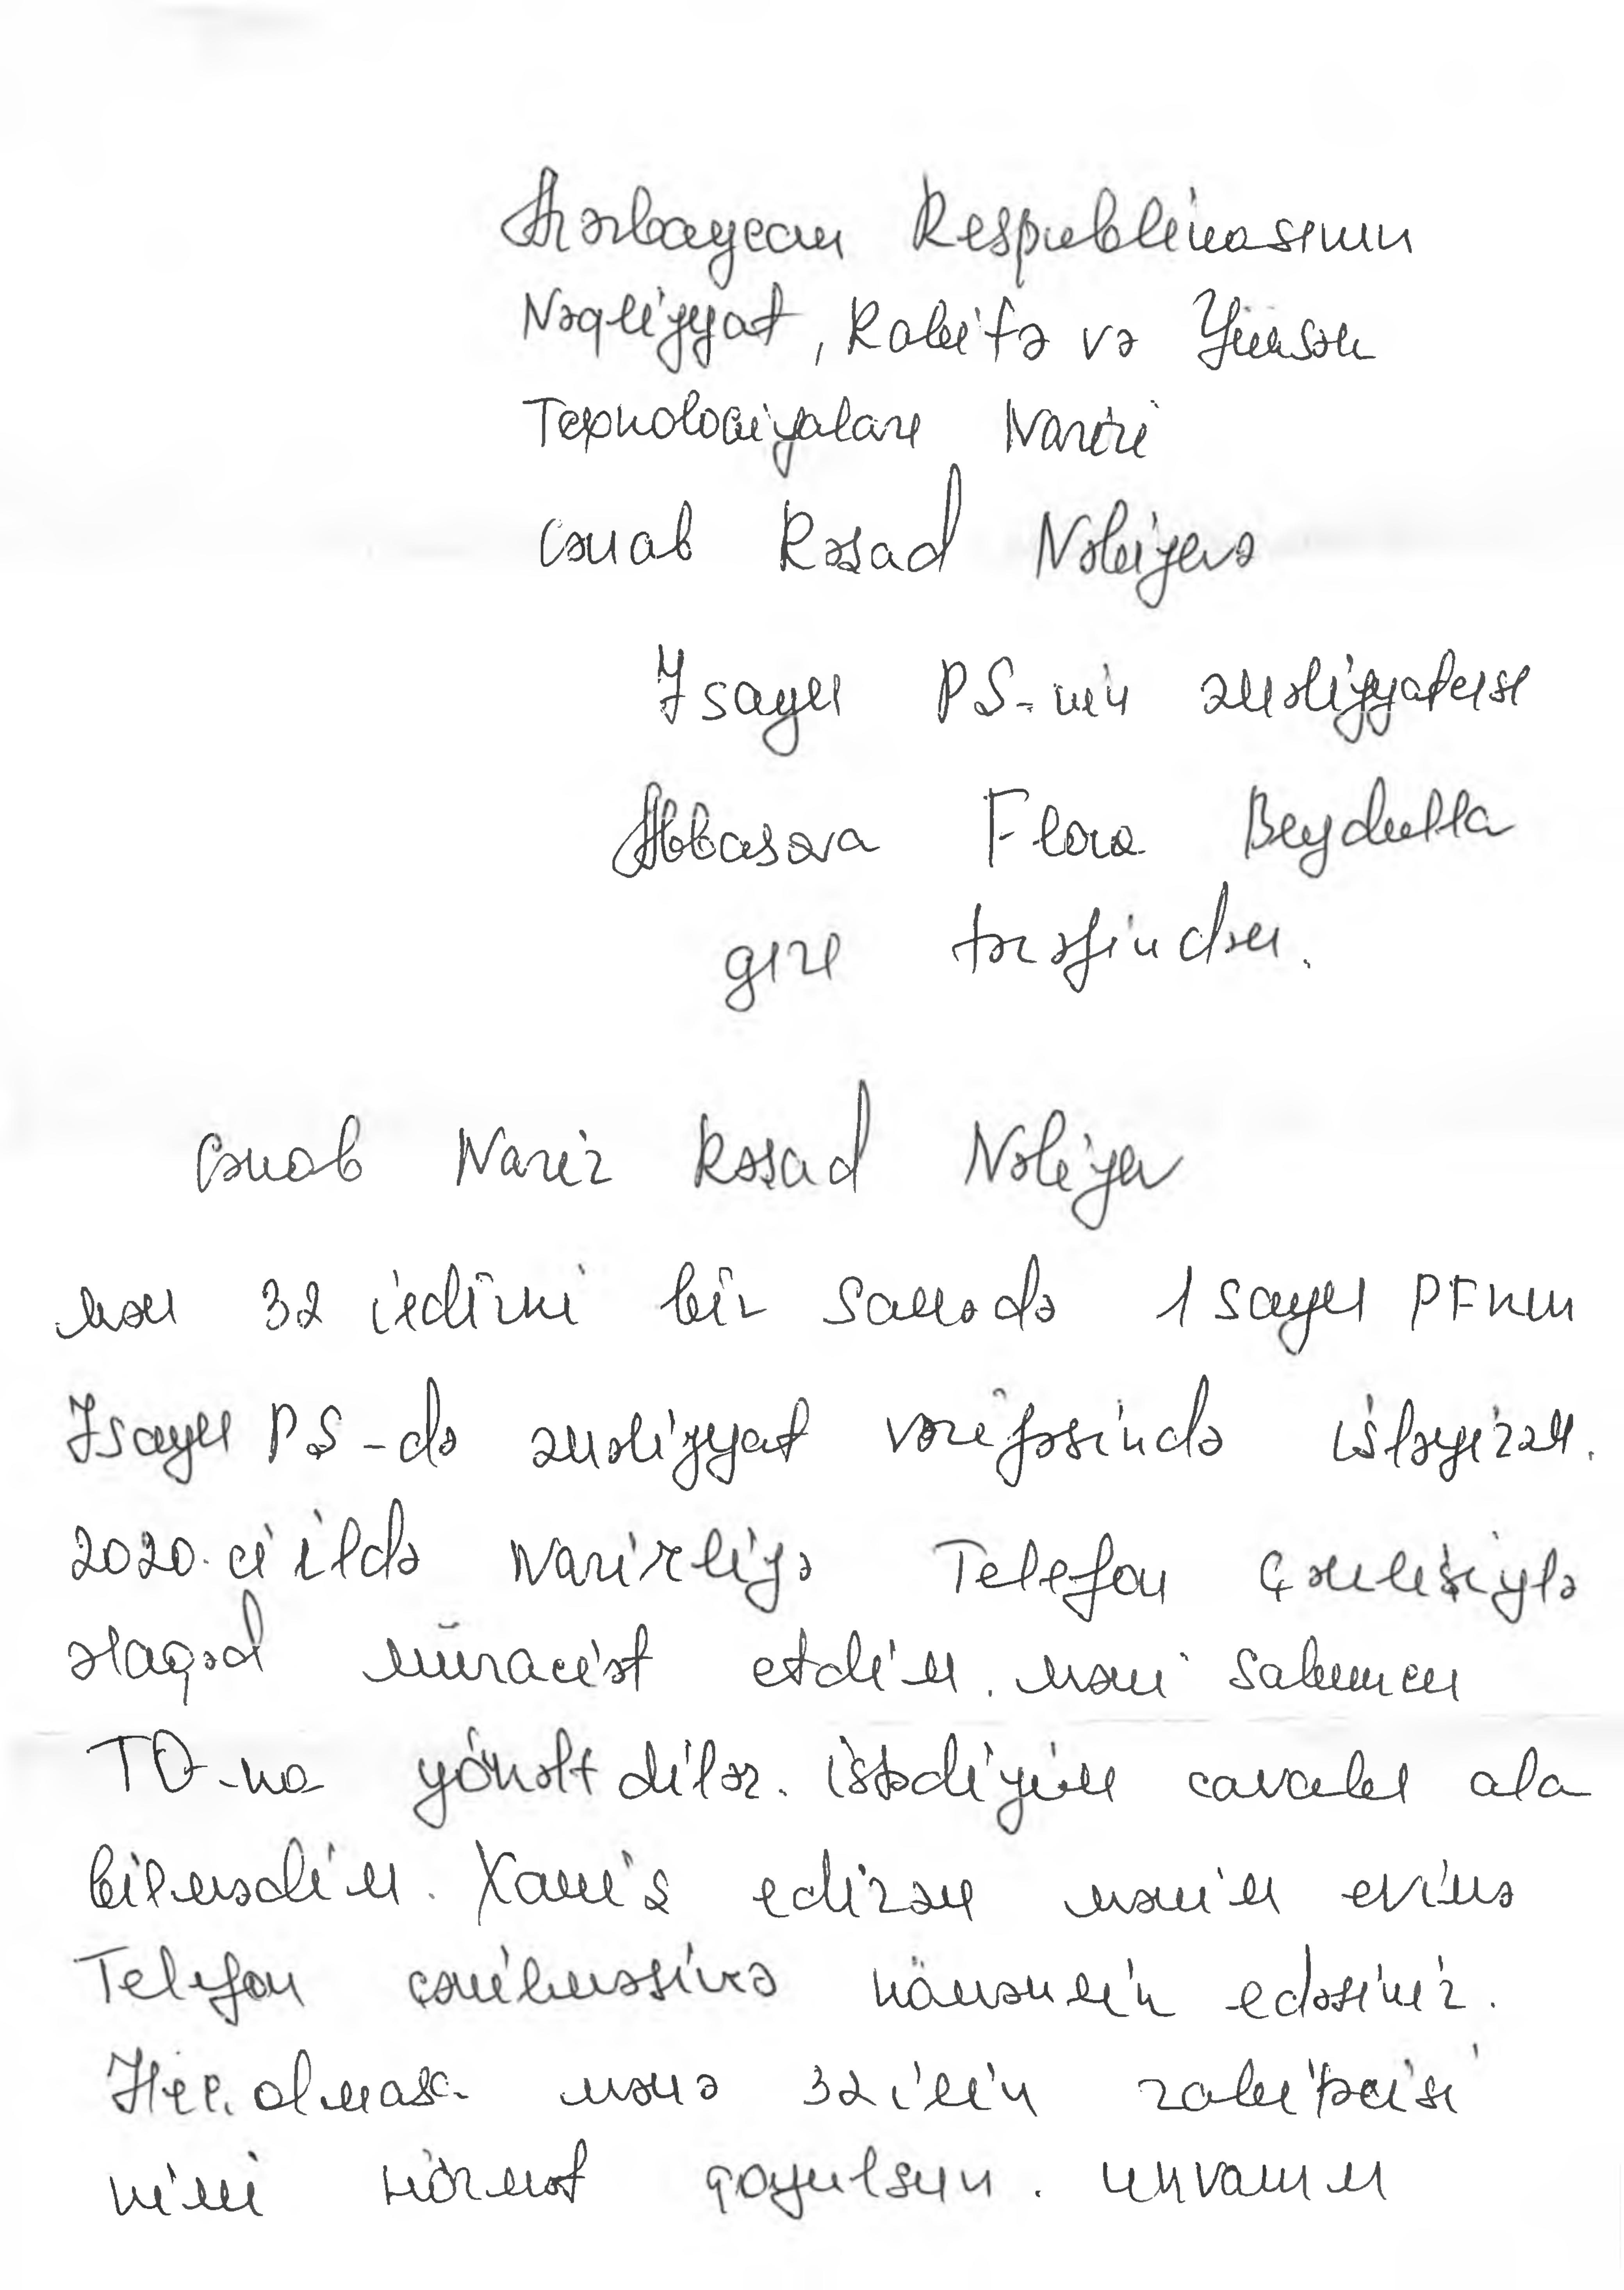 Azərbaycan Respublikasının
Nəqliyyat, Rabitə və Yüksək
Texnologiyaları Naziri
cənab Rəşad Nəbiyevə
7 sayılı PŞ-nin əməliyyatçısı
Abbasova Flora Beydulla
qızı tərəfindən.
cənab Nazir Rəşad Nəbiyev
mən 32 ildirki bir sahədə 1 sayılı PF nın
7 sayılı PŞ-də əməliyyat vəzifəsində işləyirəm.
2020-ci ildə Nazirliyə Telefon Çəkilişiylə
əlaqəd müraciət etdim. məni Sabunçu
TQ-na yönəltdilər. istədiyim cavabı ala
bilmədim. Xahiş edirəm mənim evimə
Telefon çəkilməsinə köməklik edəsiniz.
Heç olmasa mənə 32 ilin rabitəçisi
kimi hörmət qoyulsun. ünvanım